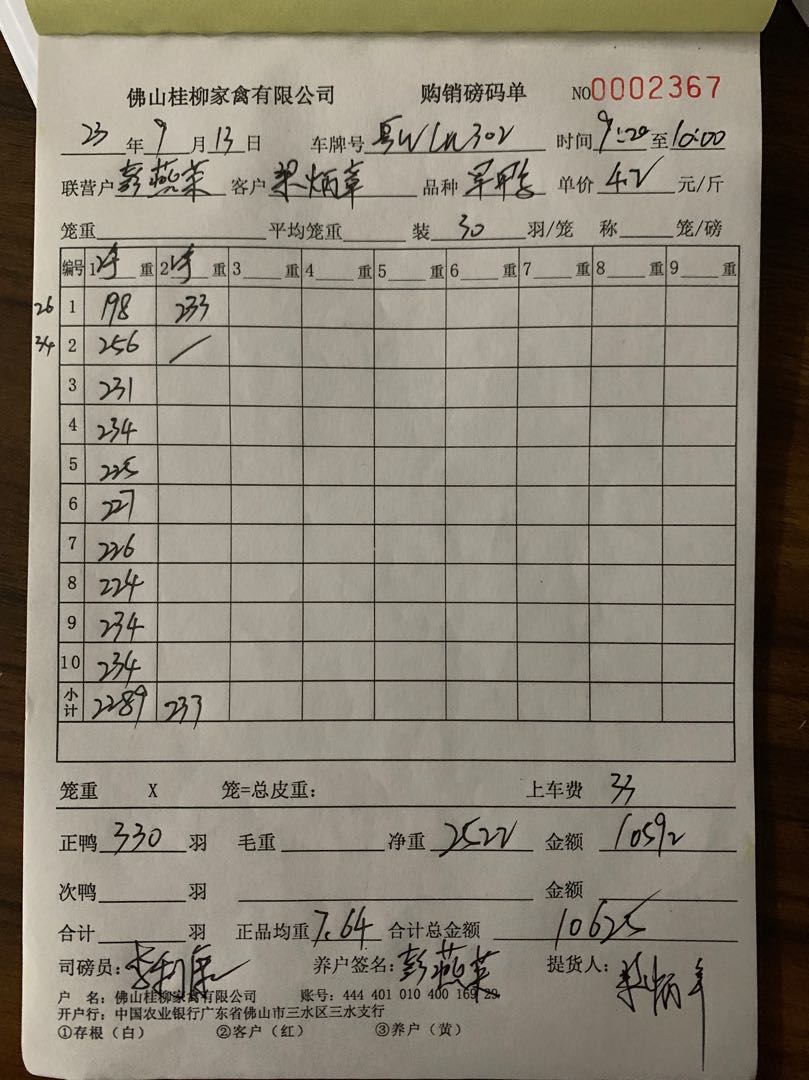 佛山桂柳家禽有限公司 购销磅码单 NO0002367
23年9月13日 车牌号 时间9:20至10:00
联营户彭燕荣 客户梁炳章 品种 单价4.2元/斤
笼重 平均笼重 装30羽/笼 称 笼/磅
编号 1 净 重 2 净 重 3 重 4 重 5 重 6 重 7 重 8 重 9 重
26 1 198 233
34 2 256 /
3 231
4 234
5 225
6 227
7 226
8 224
9 234
10 234
小计 2289 233
笼重 X 笼=总皮重: 上车费 33
正鸭330羽 毛重 净重2522 金额10592
次鸭 羽 金额
合计 羽 正品均重7.64 合计总金额10625
司磅员: 养户签名:彭燕荣 提货人:梁炳章
户 名: 佛山桂柳家禽有限公司 账号: 444 401 010 400 169 29
开户行: 中国农业银行广东省佛山市三水区三水支行
①存根（白） ②客户（红） ③养户（黄）